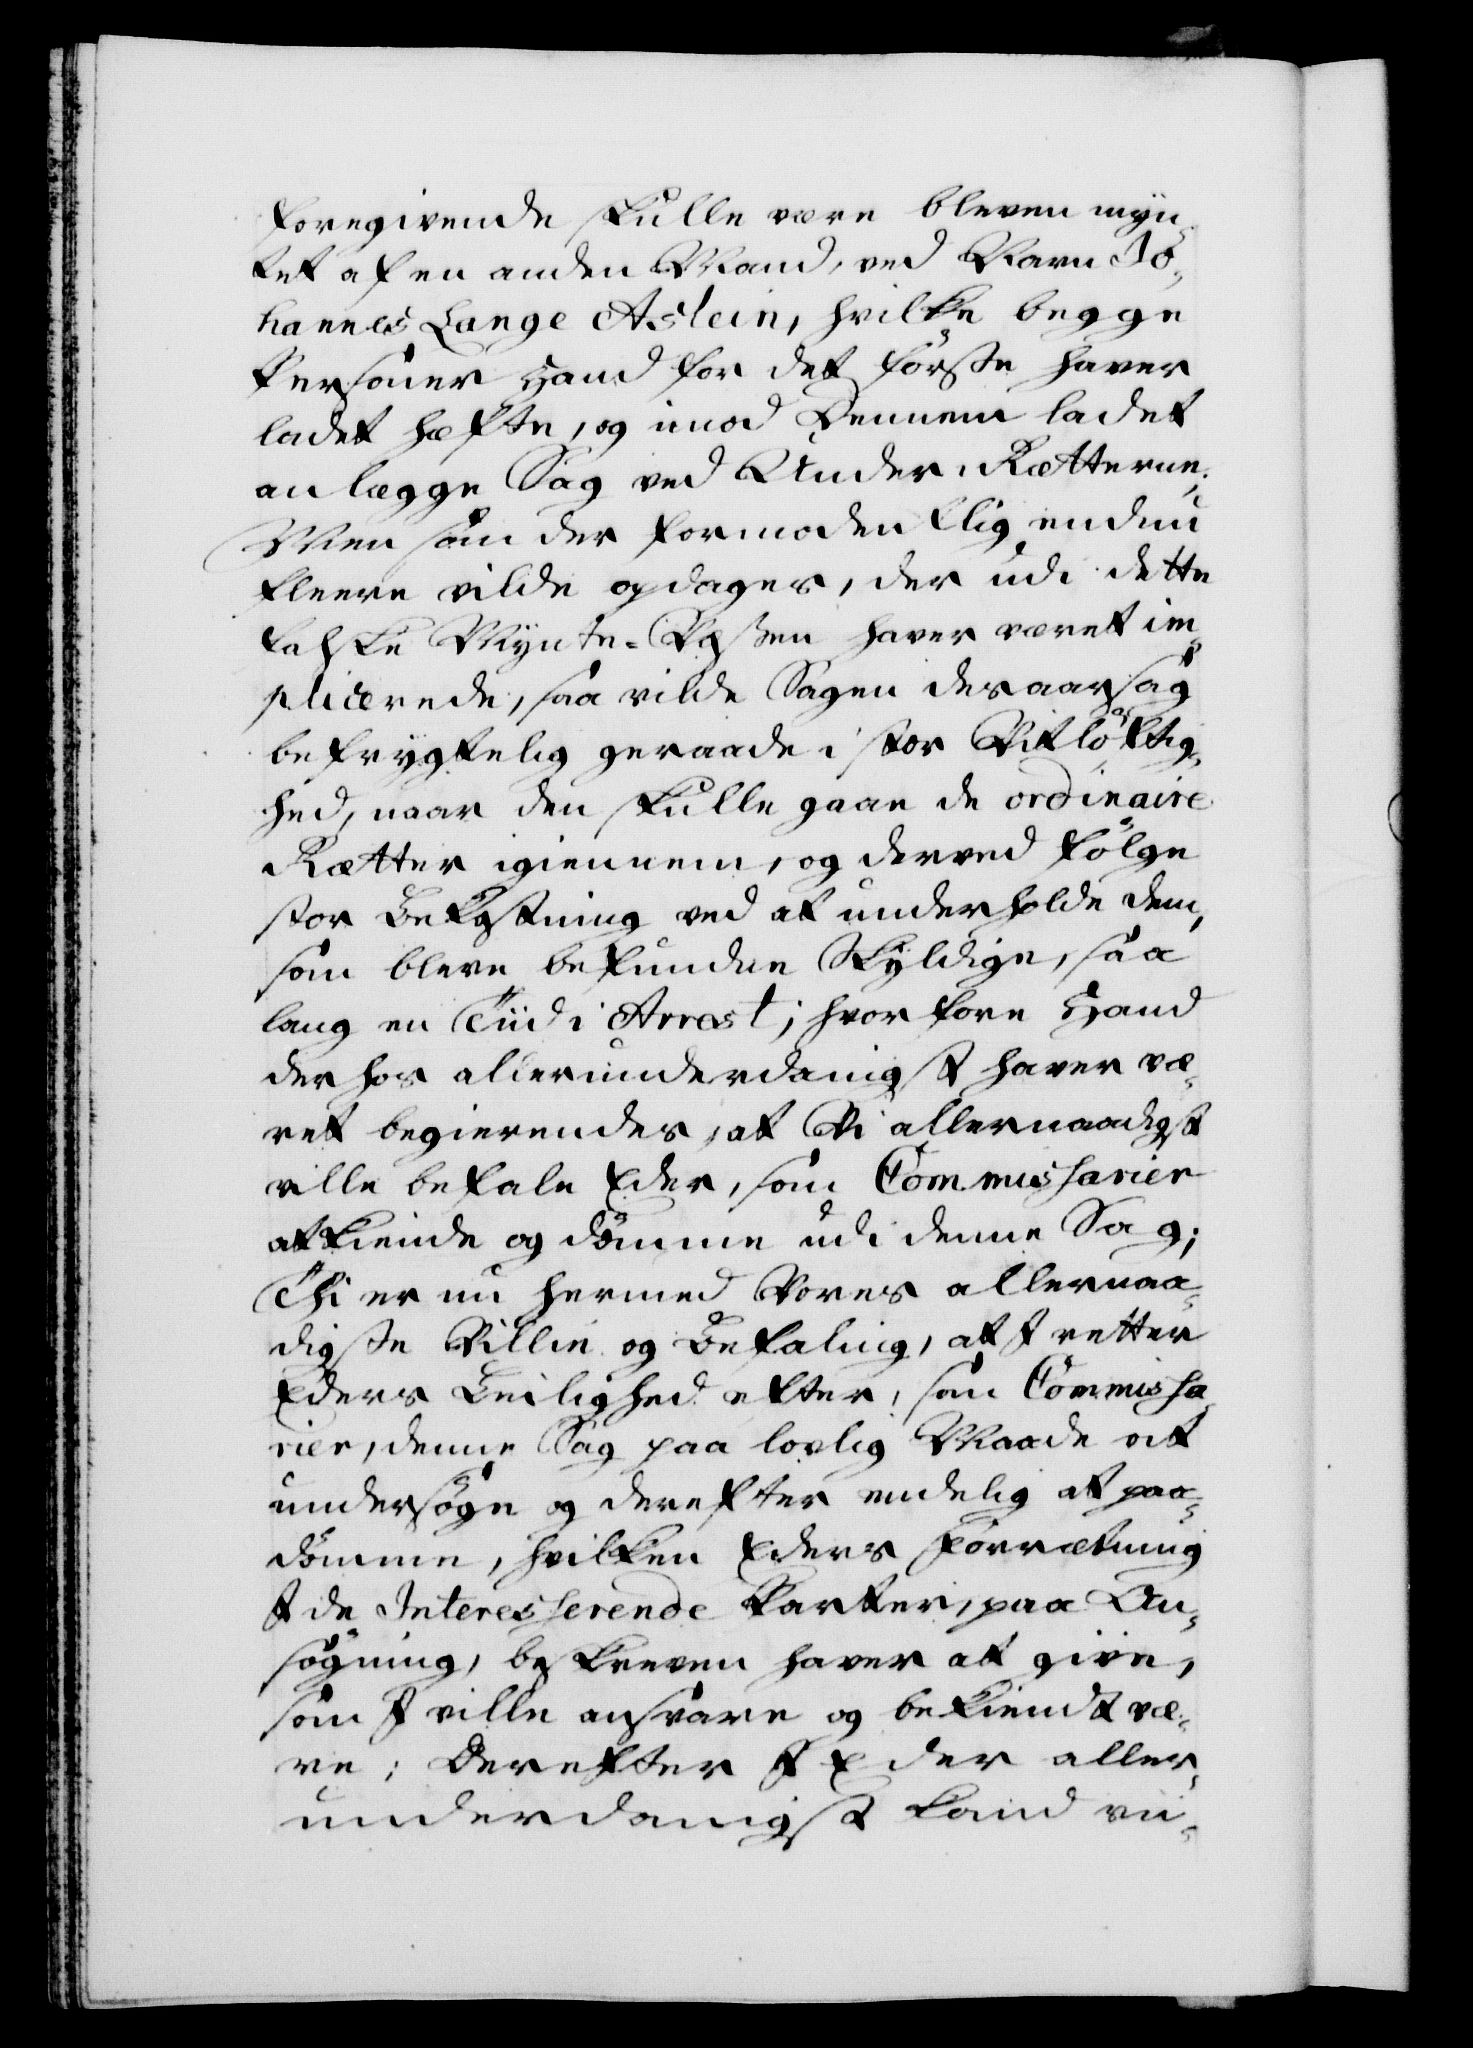 foregivende skulle være bleven myn-
tet af en anden Mand, ved Navn Jo-
hannes Lange Aslein, hvilke begge
Personer Hand for det förste haver
ladet hæfte, og imod Dennem ladet
anlægge Sag ved Under-Rætterne;
Men som der formodentlig endnu
fleere vilde opdages, der udi dette
falske Mynte-Væsen haver været im-
plicerede, saa vilde Sagen desaarsag
befrygtelig geraade i stor Vitlöftig-
hed, naar den skulle gaae de ordinaire
Rætter igiennem, og derved fölge
stor Bekostning ved at underholde dem,
som bleve befundne Skyldige, saa
lang en Tiid i Arrest; hvorfore Hand
derhos allerunderdanigst haver væ-
ret begierendes, at Vi allernaadigst
ville befale Eder, som Commissarier
at kiende og dömme udi denne Sag;
Thi er nu hermed Vores allernaa-
digste Villie og Befaling, at I retter
Eders Leilighed efter, som Commissa-
rier, denne Sag paa lovlig Maade at
undersöge og derefter endelig at paa-
dömme, hvilken Eders Forrætning
I de Interesserende Parter, paa An-
sögning, beskreven haver at give,
som I ville ansvare og bekiendt væ-
re; Derefter I Eder aller-
underdanigst kand vii-